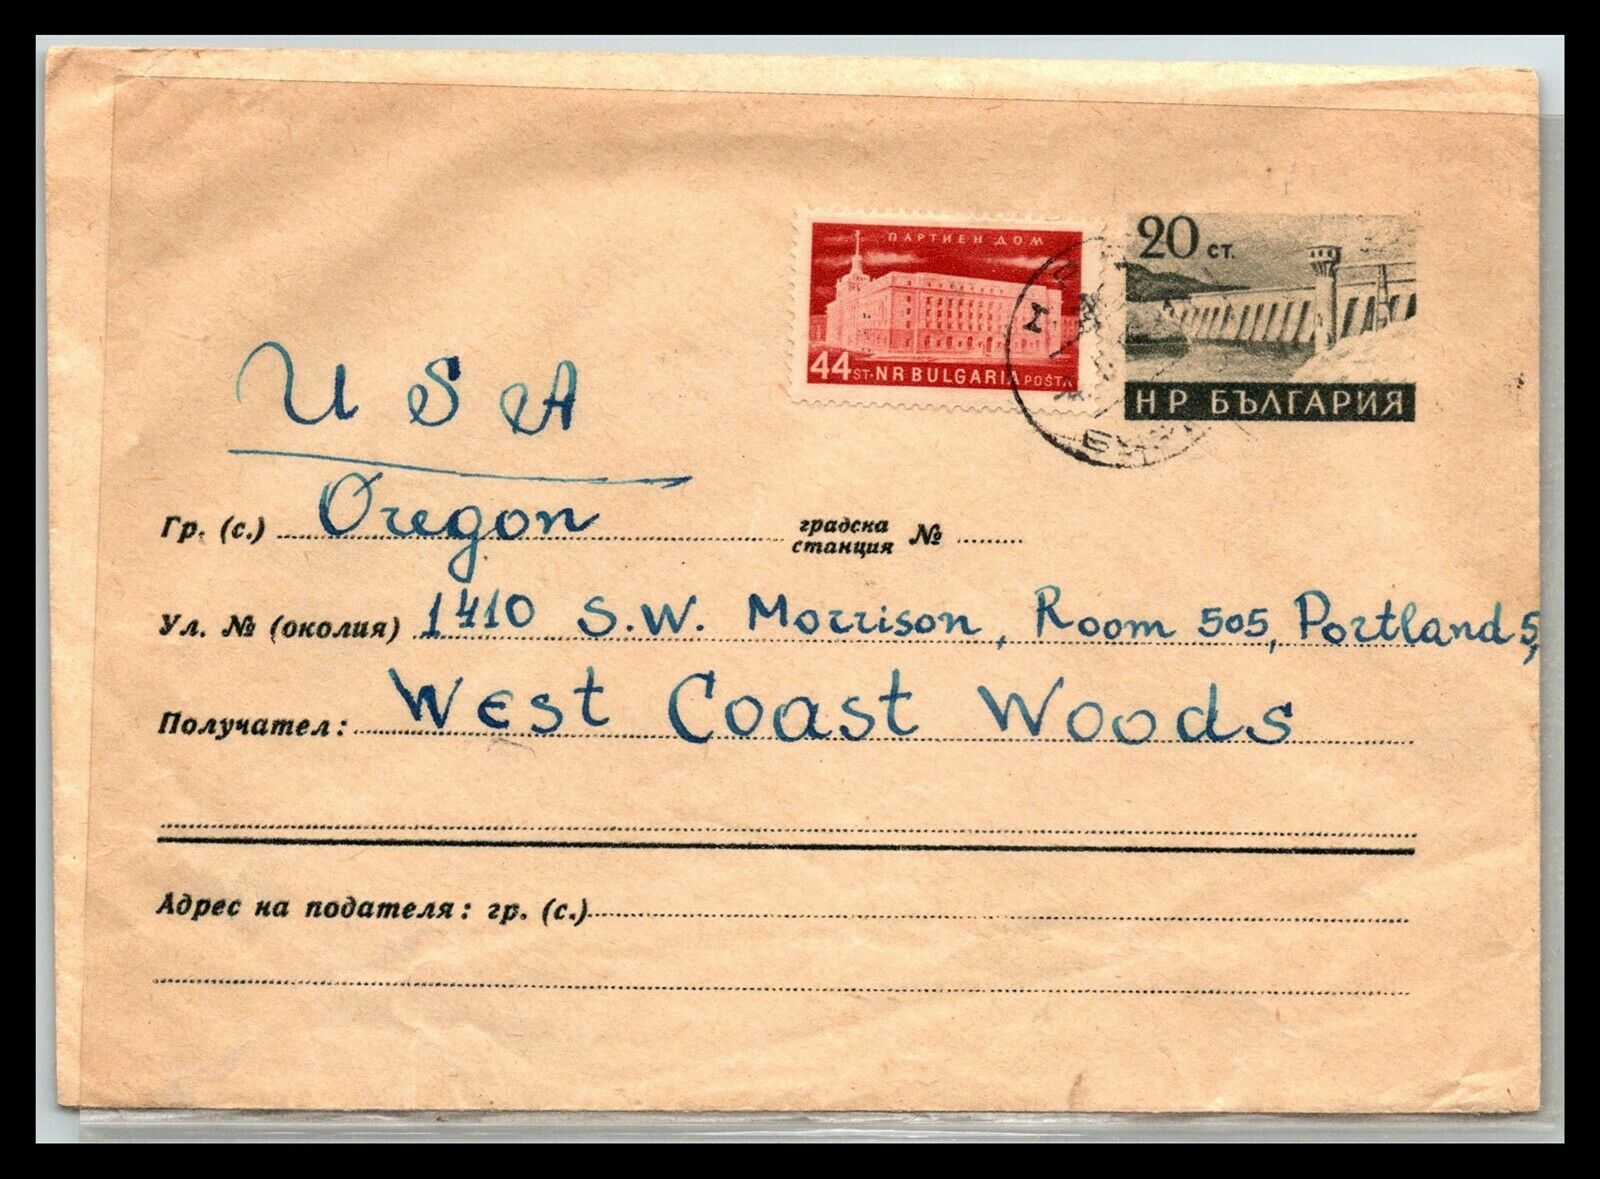 ПАРТИЕН ДОМ
44 ST. NR BULGARIA POŠTA
20 СТ.
НР БЪЛГАРИЯ
USA
Гр. (с.) Oregon градска станция №
Ул. № (околия) 1410 S.W. Morrison, Room 505, Portland 5,
Получател: West Coast Woods
Адрес на подателя: гр. (с.)